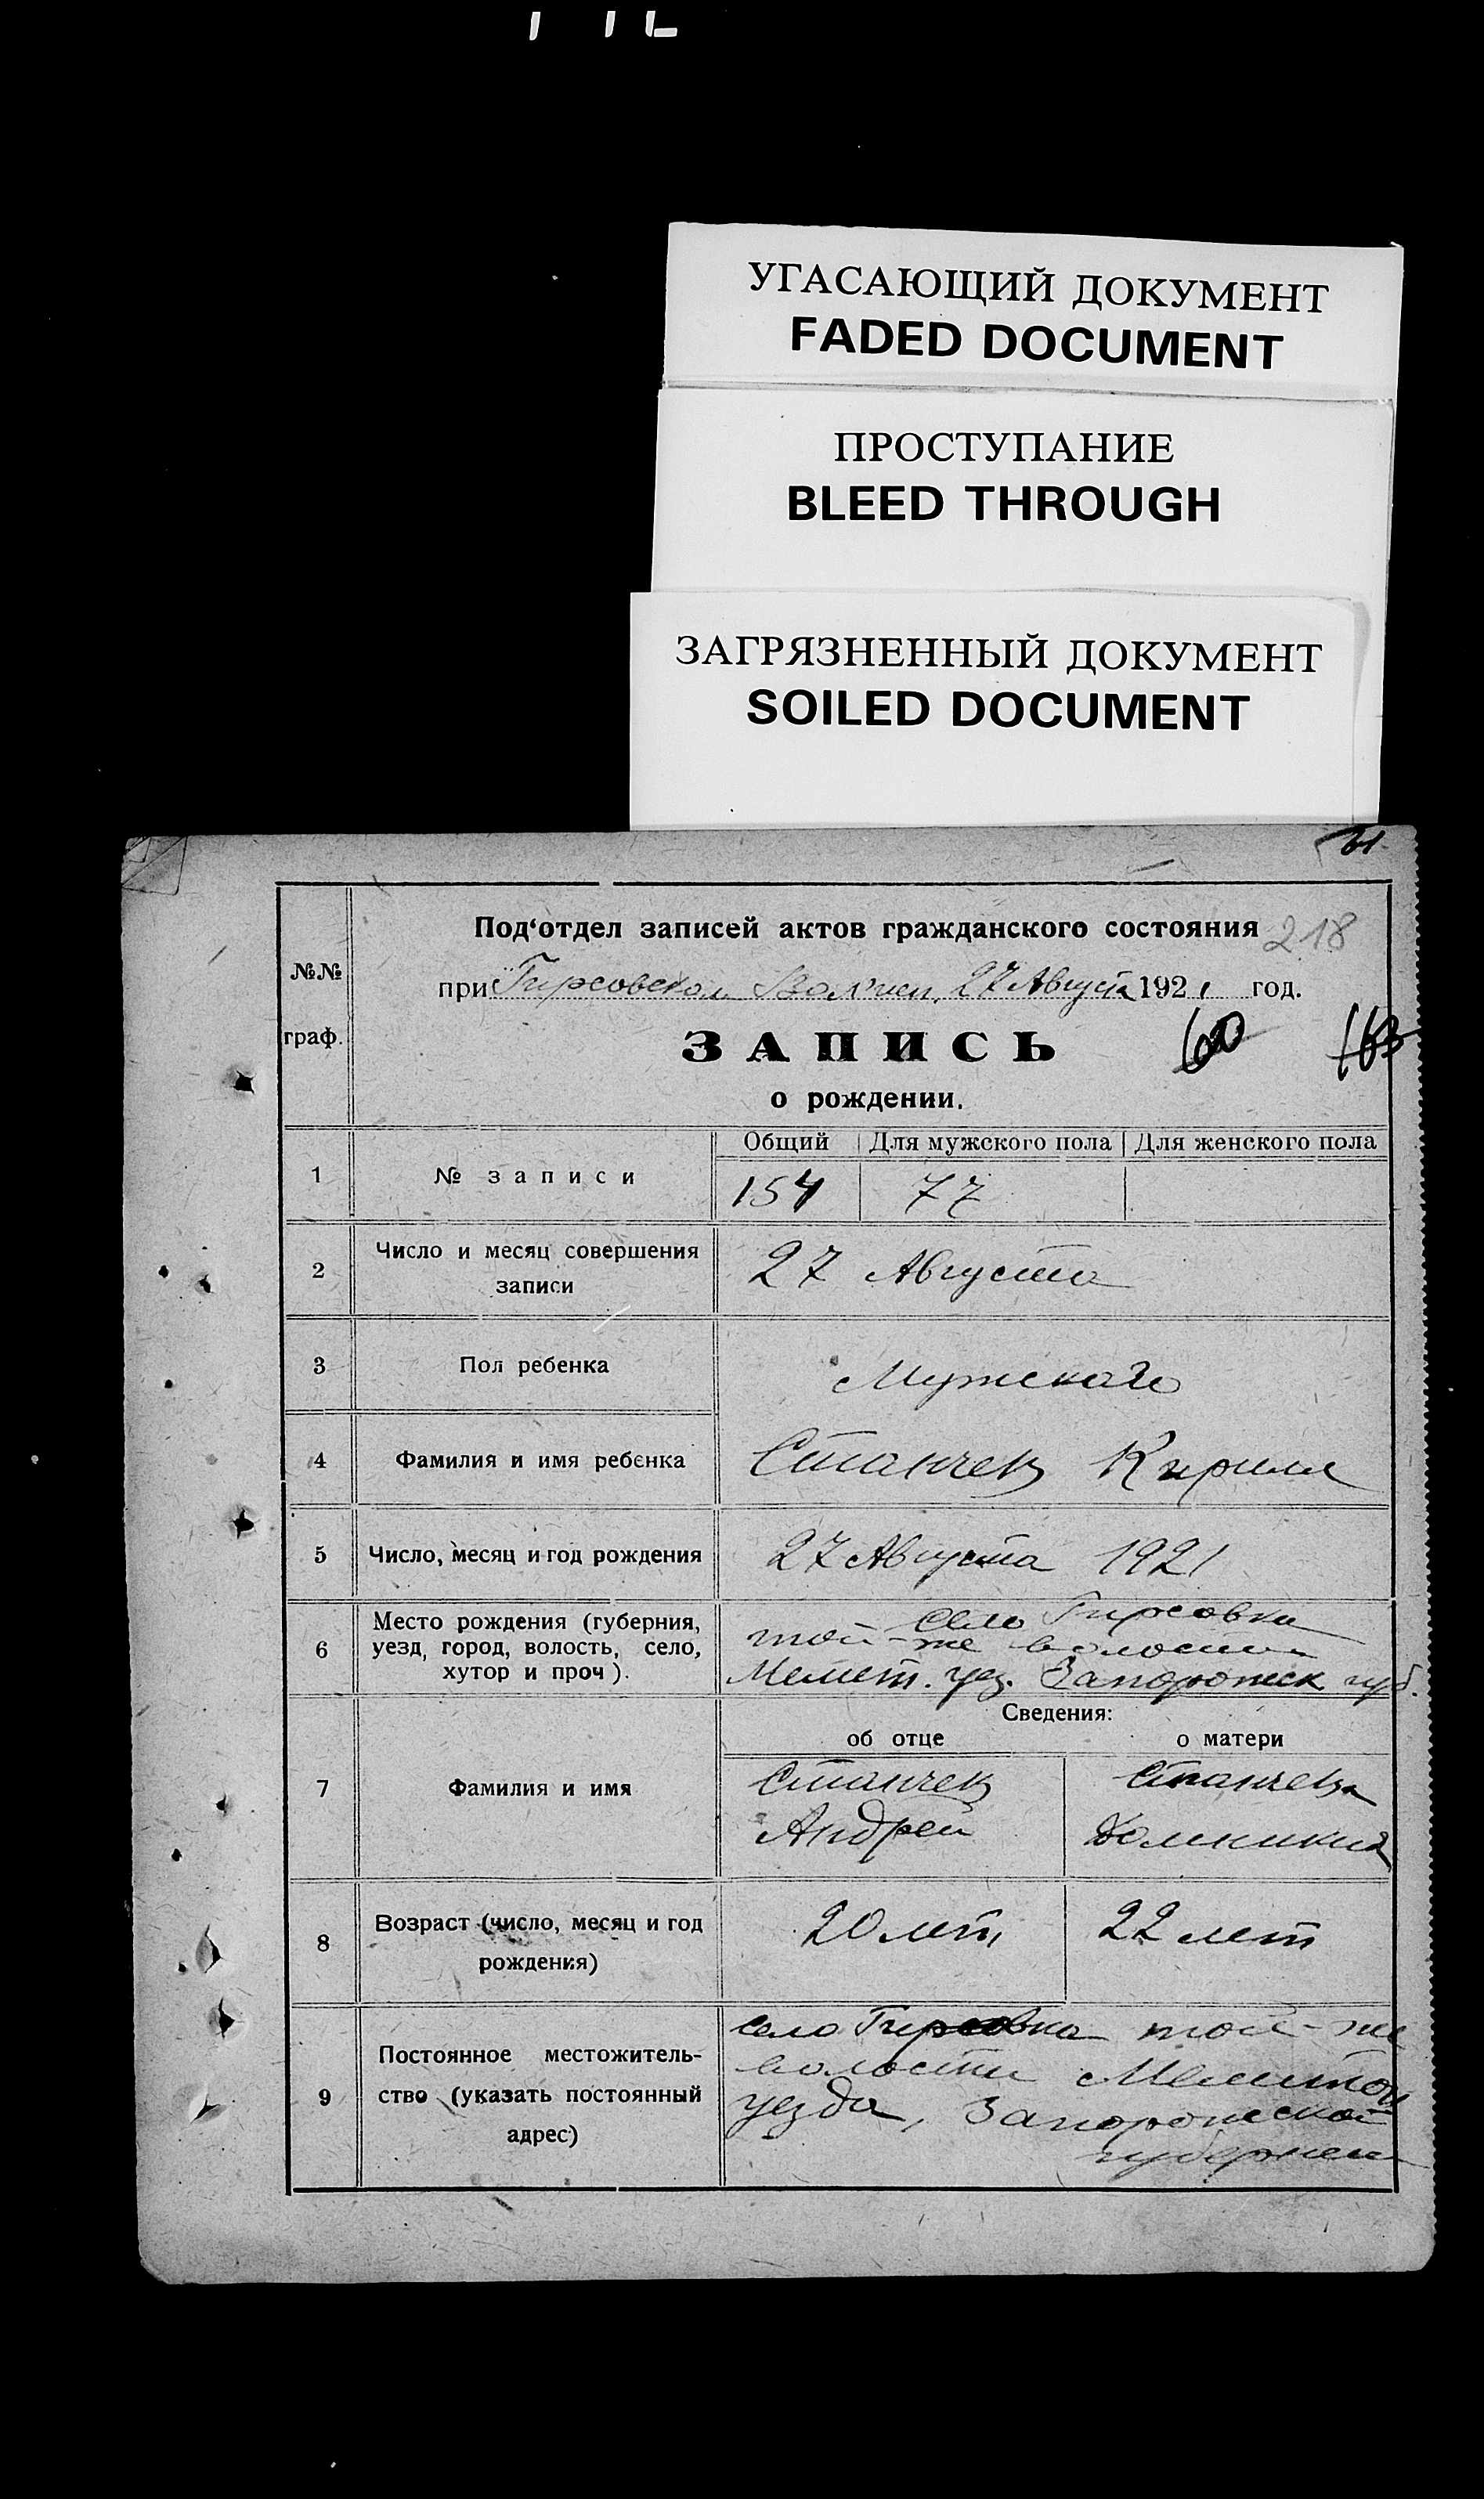 УГАСАЮЩИЙ ДОКУМЕНТ
FADED DOCUMENT
ПРОСТУПАНИЕ
BLEED THROUGH
ЗАГРЯЗНЕННЫЙ ДОКУМЕНТ
SOILED DOCUMENT
61
Под‘отдел записей актов гражданского состояния 218
при Гирсовском 27 Августа 1921 год.
№№
граф.
ЗАПИСЬ 60 163
о рождении.
Общий Для мужского пола Для женского пола
1 № записи 154 77
2 Число и месяц совершения
записи
27 Августа
3 Пол ребенка Мужскаго
4 Фамилия и имя ребенка Станчев Кирилл
5 Число, месяц и год рождения 27 Августа 1921
6 Место рождения (губерния,
уезд, город, волость, село,
хутор и проч).
село Гирсовка
той-же волости
Мелит. уез. Запорожск губ.
Сведения:
об отце о матери
7 Фамилия и имя
Станчев Станчева
Андрей Домникия
8 Возраст (число, месяц и год
рождения)
20 лет 22 лет
9 Постоянное местожитель-
ство (указать постоянный
адрес)
село Гирсовка той-же
волости Мелитоп
уезда, Запорожской
губернии